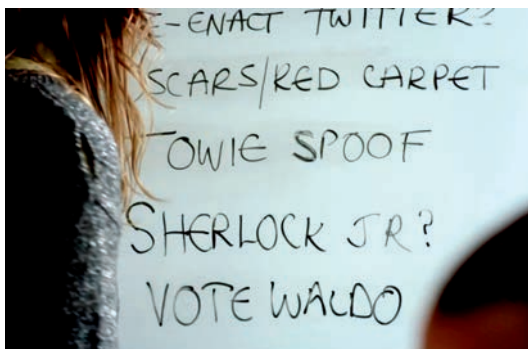 E-ENACT TWITTER?
SCARS/RED CARPET
TOWIE SPOOF
SHERLOCK JR?
VOTE WALDO